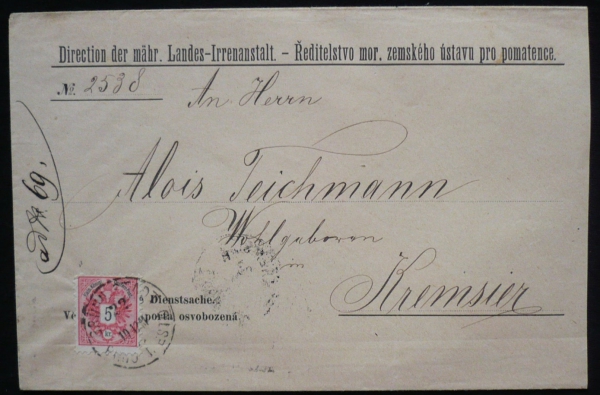 Direction der mähr. Landes-Irrenanstalt. – Ředitelstvo mor. zemského ústavu pro pomatence.
№ 2538
An Herrn
ad № 69.
Alois Teichmann
Wohlgeboren
in
Kremsier
Dienstsache.
porta osvobozená.
5